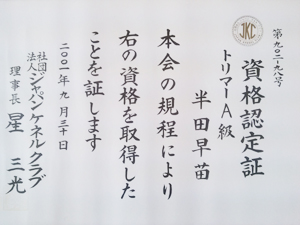 JKC
第九〇二-九八号
資格認定証
トリマーA級
半田早苗
本会の規程により
右の資格を取得した
ことを証します
二〇〇一年九月三十日
社団法人 ジャパンケネルクラブ
理事長 星 三光